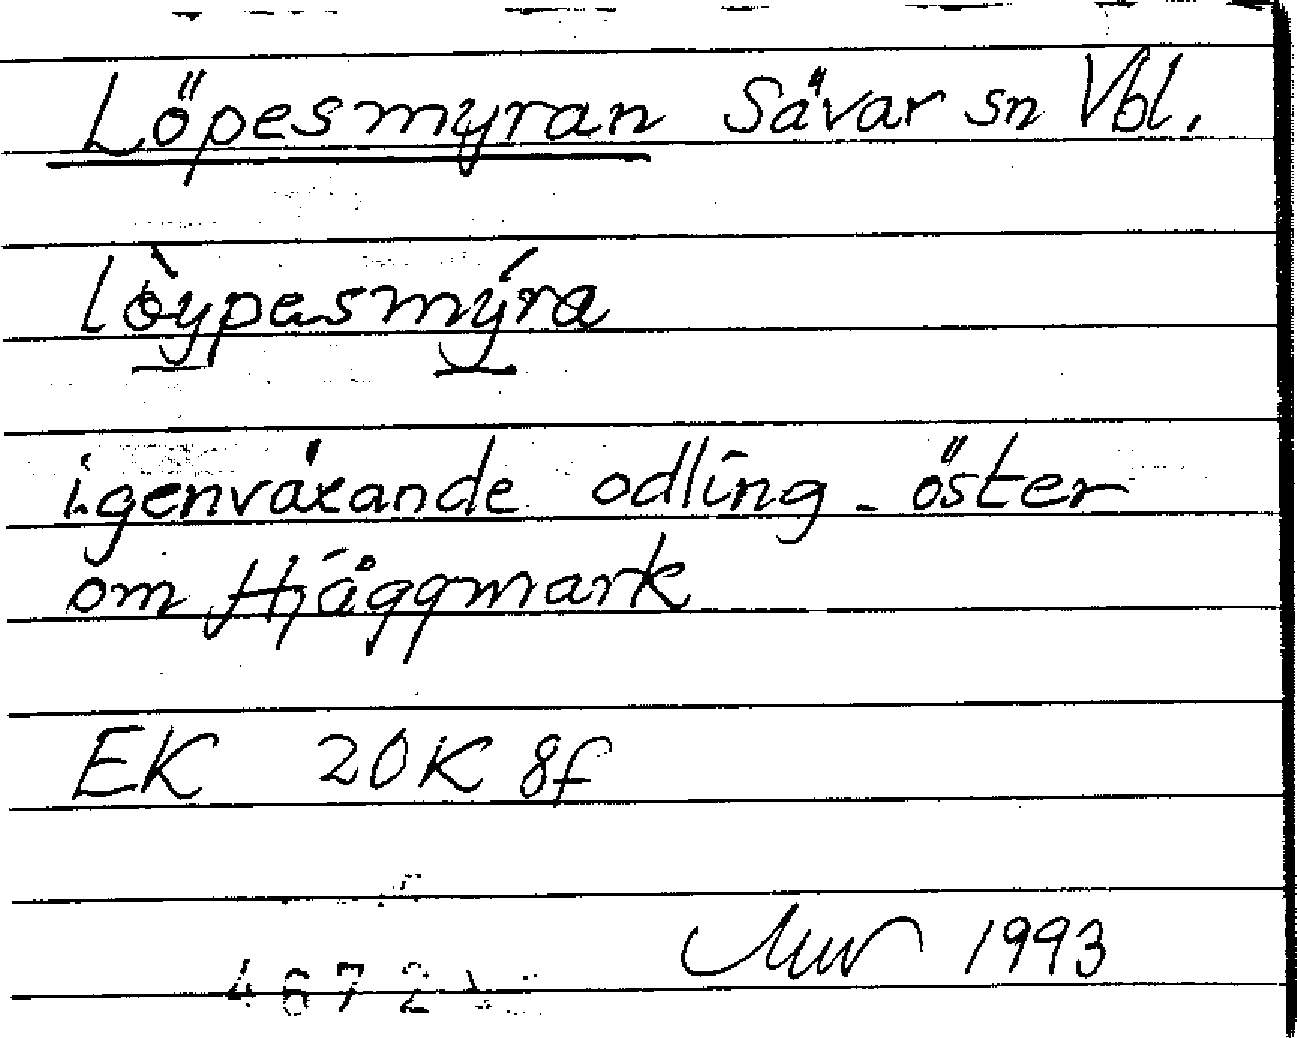 Löpesmyran Sävar sn Vbl.
löypesmýra
igenväxande odling öster
om Hjåggmark
EK 20K 8f
1993
4672